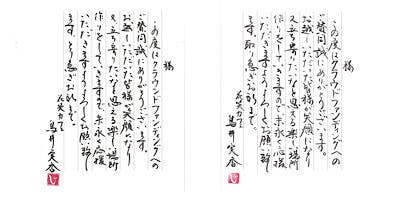 様
この度はクラウドファンディングへの
ご賛同誠にありがとうございます。
お越しいただいた皆様が笑顔になり
又立ち寄りたいなと思える楽しい場所
作りをしていきますので末永く応援
いただきますようよろしくお願い致し
ます。取り急ぎお礼まで。
鳥井実香
様
この度はクラウドファンディングへの
ご賛同誠にありがとうございます。
お越しいただいた皆様が笑顔になり
又立ち寄りたいなと思える楽しい場所
作りをしていきますので末永く応援
いただきますようよろしくお願い致し
ます。取り急ぎお礼まで。
鳥井実香